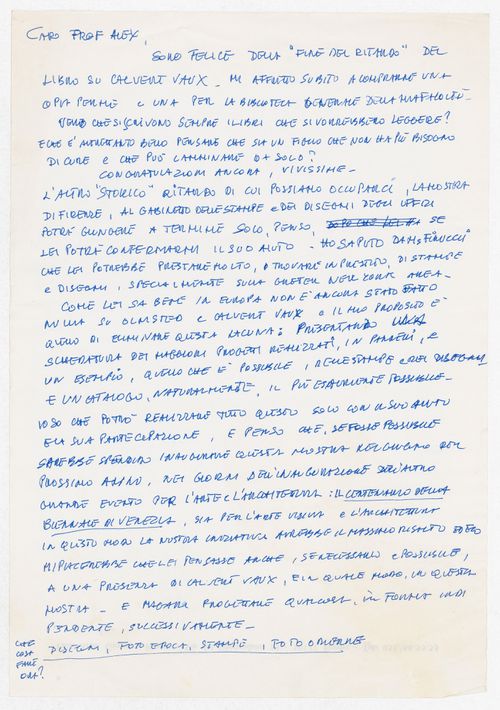 CARO PROF ALEX,
SONO FELICE DELLA "FINE DEL RITARDO" DEL
LIBRO SU CALVERT VAUX - MI AFFRETTO SUBITO A COMPRARNE UNA
COPIA PER ME E UNA PER LA BIBLIOTECA GENERALE DELLA MIA FACOLTÀ -
VERO CHE SI SCRIVONO SEMPRE I LIBRI CHE SI VORREBBERO LEGGERE?
E CHE È ALTRETTANTO BELLO PENSARE CHE SIA UN FIGLIO CHE NON HA PIÙ BISOGNO
DI CURE E CHE PUÒ CAMMINARE DA SOLO?
CONGRATULAZIONI ANCORA, VIVISSIME -
L'ALTRO "STORICO" RITARDO DI CUI POSSIAMO OCCUPARCI, LA MOSTRA
DI FIRENZE, AL GABINETTO DELLE STAMPE E DEI DISEGNI DEGLI UFFIZI
POTRÀ GIUNGERE A TERMINE SOLO, PENSO, SE
LEI POTRÀ CONFERMARMI IL SUO AIUTO - HO SAPUTO DA
CHE LEI POTREBBE PRESTARE MOLTO, O TROVARE IN PRESTITO, DI STAMPE
E DISEGNI, SPECIALMENTE SULLA GREATER NEW YORK AREA -
COME LEI SA BENE IN EUROPA NON È ANCORA STATO FATTO
NULLA SU OLMSTED E CALVERT VAUX E IL MIO PROPOSITO È
QUELLO DI ELIMINARE QUESTA LACUNA: PRESENTANDO UNA
SCHEDATURA DEI MAGGIORI PROGETTI REALIZZATI, IN PANNELLI, E
UN ESEMPIO, QUELLO CHE È POSSIBILE, DELLE STAMPE E DEI DISEGNI
E UN CATALOGO, NATURALMENTE, IL PIÙ ESAURIENTE POSSIBILE -
VOSO CHE POTRÒ REALIZZARE TUTTO QUESTO SOLO CON IL SUO AIUTO
E LA SUA PARTECIPAZIONE, E PENSO CHE, SE FOSSE POSSIBILE
SAREBBE SPLENDIDO INAUGURARE QUESTA MOSTRA NEL GIUGNO DEL
PROSSIMO ANNO, NEI GIORNI DELL'INAUGURAZIONE DELL'ALTRO
GRANDE EVENTO PER L'ARTE E L'ARCHITETTURA: IL CENTENARIO DELLA
BIENNALE DI VENEZIA, SIA PER L'ARTE VISIVA E L'ARCHITETTURA
IN QUESTO MODO LA NOSTRA INIZIATIVA AVREBBE IL MASSIMO RISALTO
MI PIACEREBBE CHE LEI PENSASSE ANCHE, SE NECESSARIO E POSSIBILE,
A UNA PRESENZA DI CALVERT VAUX, E IN QUALE MODO, IN QUESTA
MOSTRA - E MAGARI PROGETTARE QUALCOSA, IN FORMA INDI
PENDENTE, SUCCESSIVAMENTE -
DISEGNI, FOTO EPOCA, STAMPE, FOTO ODIERNE
CHE
COSA
FARE
ORA?